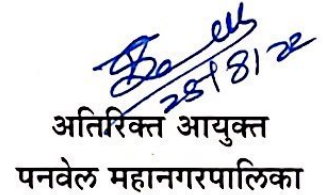 25/8/22
अतिरिक्त आयुक्त
पनवेल महानगरपालिका